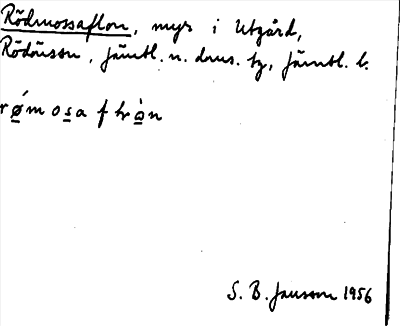 Rödmossaflon, myr i Utgård,
Rödösssn, Jämtl. n. doms. tg, Jämtl. l.
røm osa flon
S. B. Jansson 1956